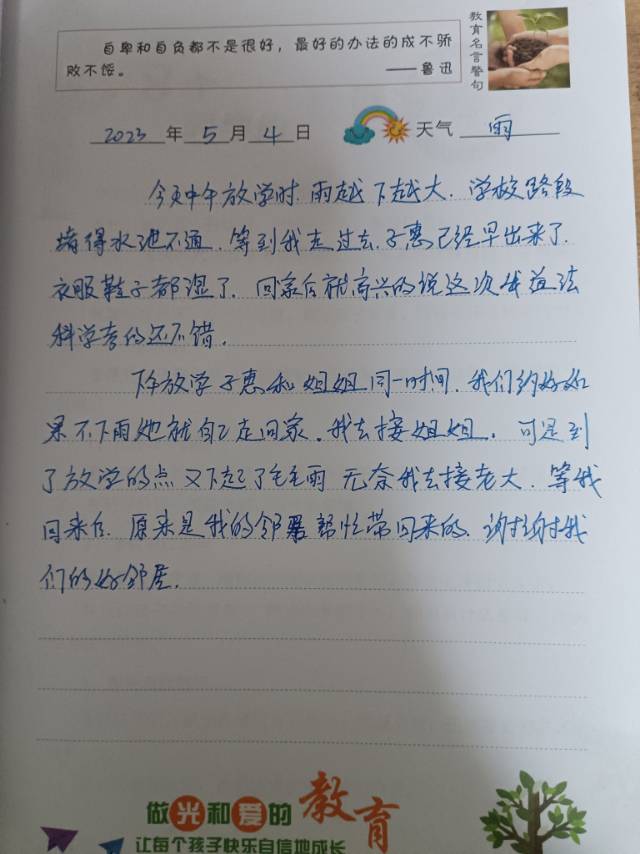 自卑和自负都不是很好，最好的办法的成不骄
败不馁。
——鲁迅
教育名言警句
2023年5月4日 天气 雨
今天中午放学时雨越下越大.学校路段
堵得水泄不通.等到我走过去.子惠已经早出来了.
衣服鞋子都湿了.回家后就高兴的说这次我道法
科学考的还不错.
下午放学子惠和姐姐同一时间.我们约好如
果不下雨她就自己走回家.我去接姐姐.可是到
了放学的点又下起了毛毛雨无奈我去接老大.等我
回来后.原来是我的邻居帮忙带回来的.谢谢我
们的好邻居.
做光和爱的教育
让每个孩子快乐自信地成长